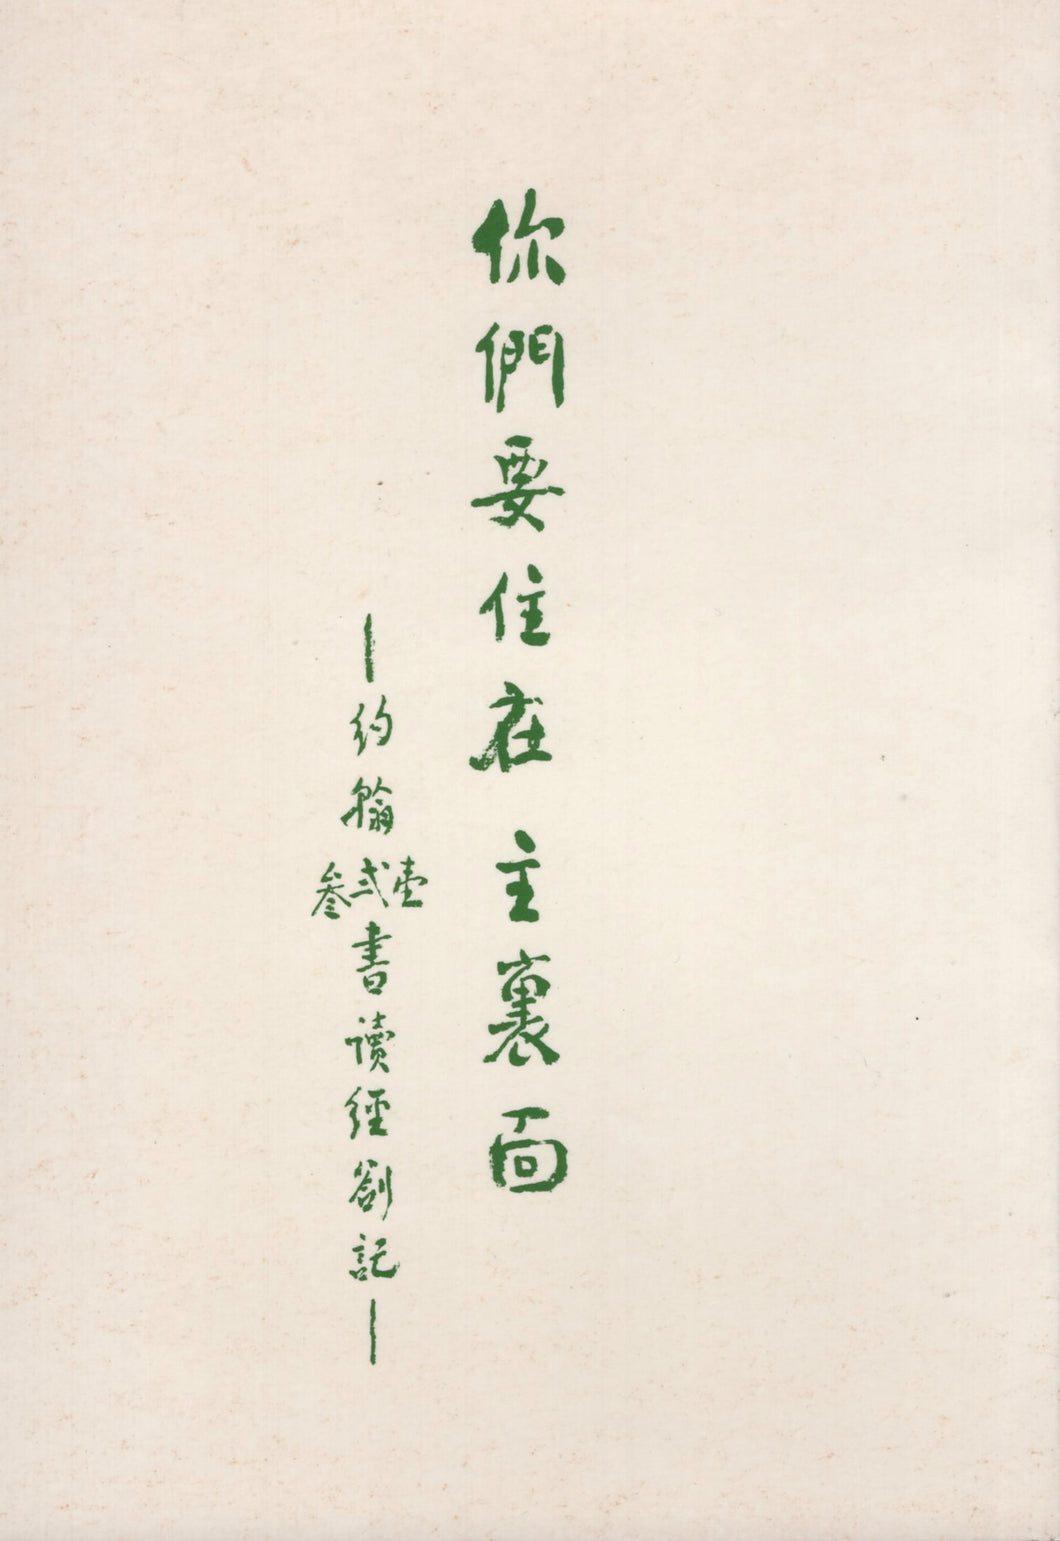 你們要住在主裏面
—約翰壹貳叁書讀經劄記—